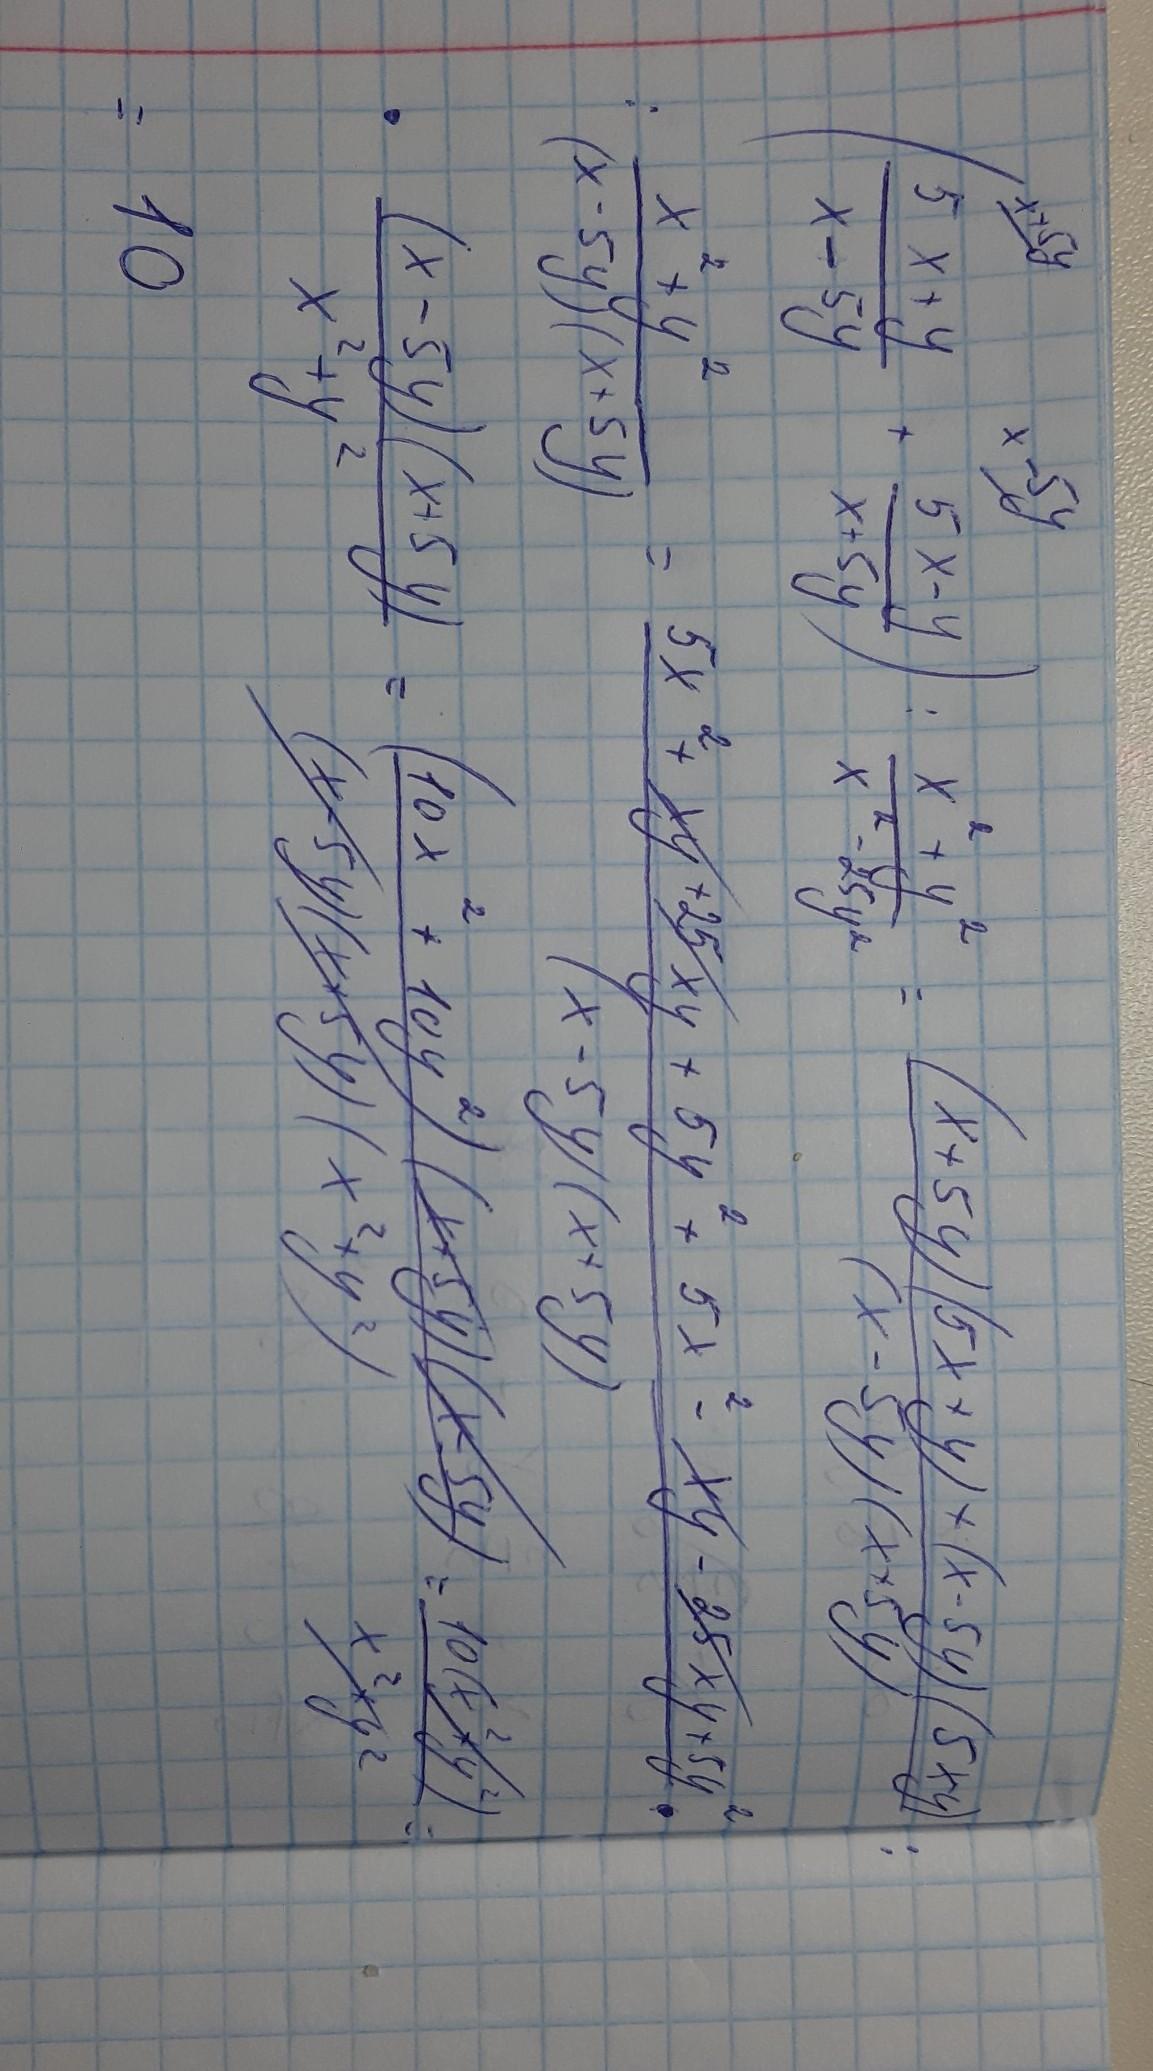 ( (5x+y)/(x-5y) + (5x-y)/(x+5y) ) : (x²+y²)/(x²-25y²) = ((x+5y)(5x+y)+(x-5y)(5x-y))/((x-5y)(x+5y)) :
: (x²+y²)/((x-5y)(x+5y)) = (5x²+xy+25xy+5y²+5x²-xy-25xy+5y²)/((x-5y)(x+5y)) •
• ((x-5y)(x+5y))/(x²+y²) = ((10x²+10y²)(x+5y)(x-5y))/((x-5y)(x+5y)(x²+y²)) = 10(x²+y²)/(x²+y²) =
= 10